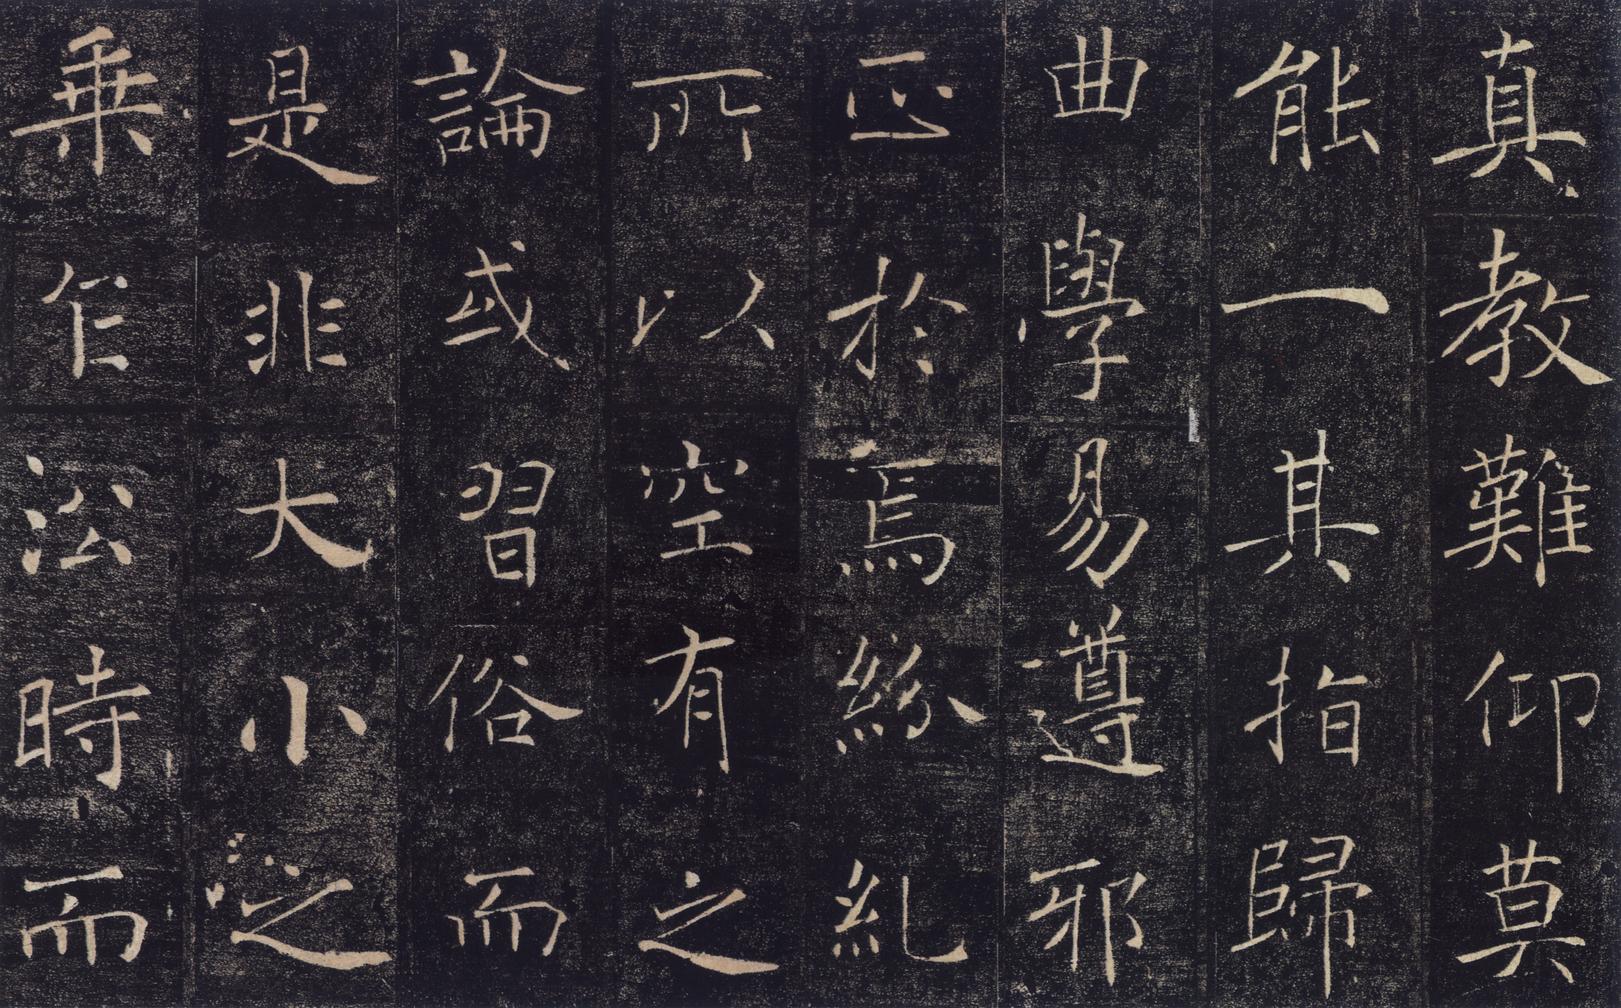 真教難仰莫
能一其指歸
曲學易遵邪
正於焉紛糺
所以空有之
論或習俗而
是非大小之
乗乍沿時而